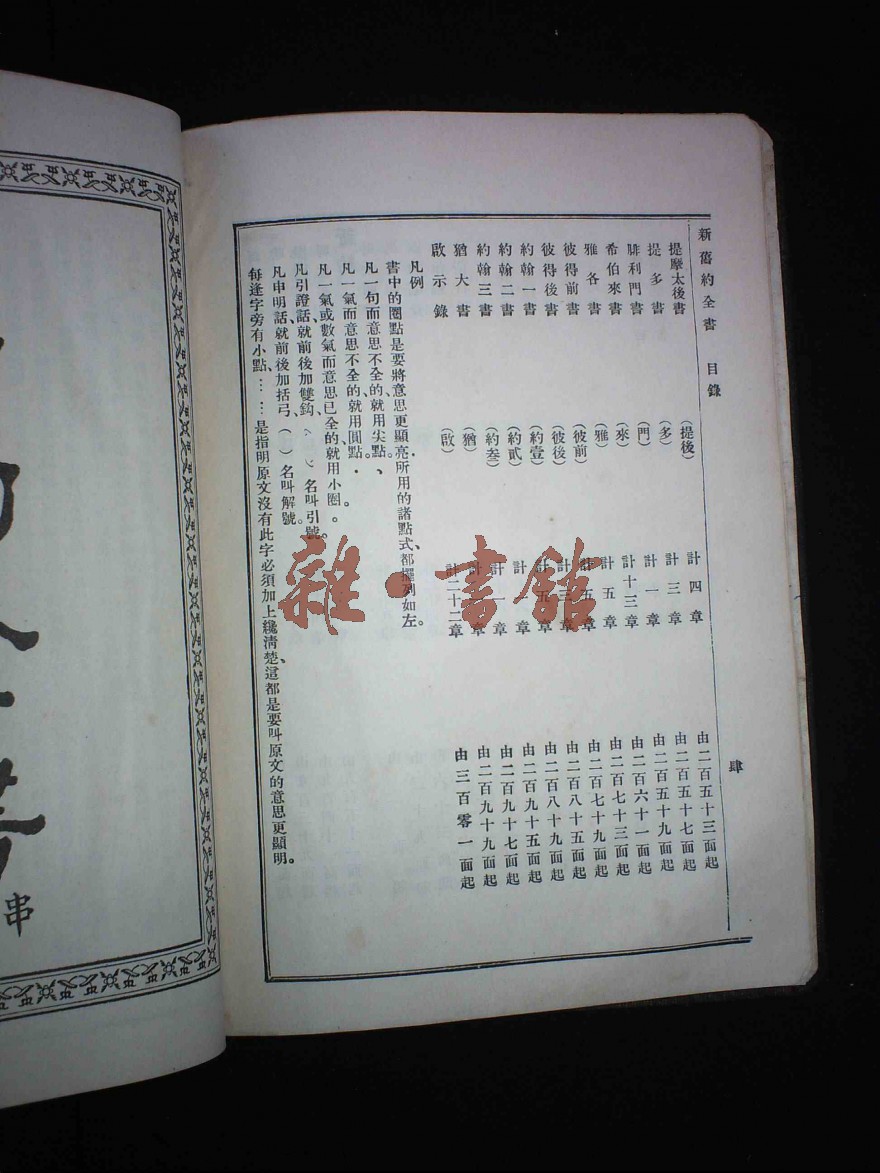 新舊約全書 目錄 肆
提摩太後書 (提後) 計四章 由二百五十三面起
提多書 (多) 計三章 由二百五十七面起
腓利門書 (門) 計一章 由二百五十九面起
希伯來書 (來) 計十三章 由二百六十一面起
雅各書 (雅) 計五章 由二百七十三面起
彼得前書 (彼前) 計五章 由二百七十九面起
彼得後書 (彼後) 計三章 由二百八十五面起
約翰一書 (約壹) 計五章 由二百八十九面起
約翰二書 (約貳) 計一章 由二百九十五面起
約翰三書 (約叁) 計一章 由二百九十七面起
猶大書 (猶) 計一章 由二百九十九面起
啟示錄 (啟) 計二十二章 由三百零一面起
凡例
書中的圈點是要將意思更顯亮所用的諸點式、都擺列如左。
凡一句而意思不全的、就用尖點。、
凡一氣而意思不全的、就用圓點．
凡一氣或數氣而意思已全的就用小圈。。
凡引證話、就前後加雙鈎、〵 〵 名叫引號。
凡申明話、就前後加括弓、( ) 名叫解號。
每逢字旁有小點、……是指明原文沒有此字必須加上纔清楚、這都是要叫原文的意思更顯明。
串
雜·書館